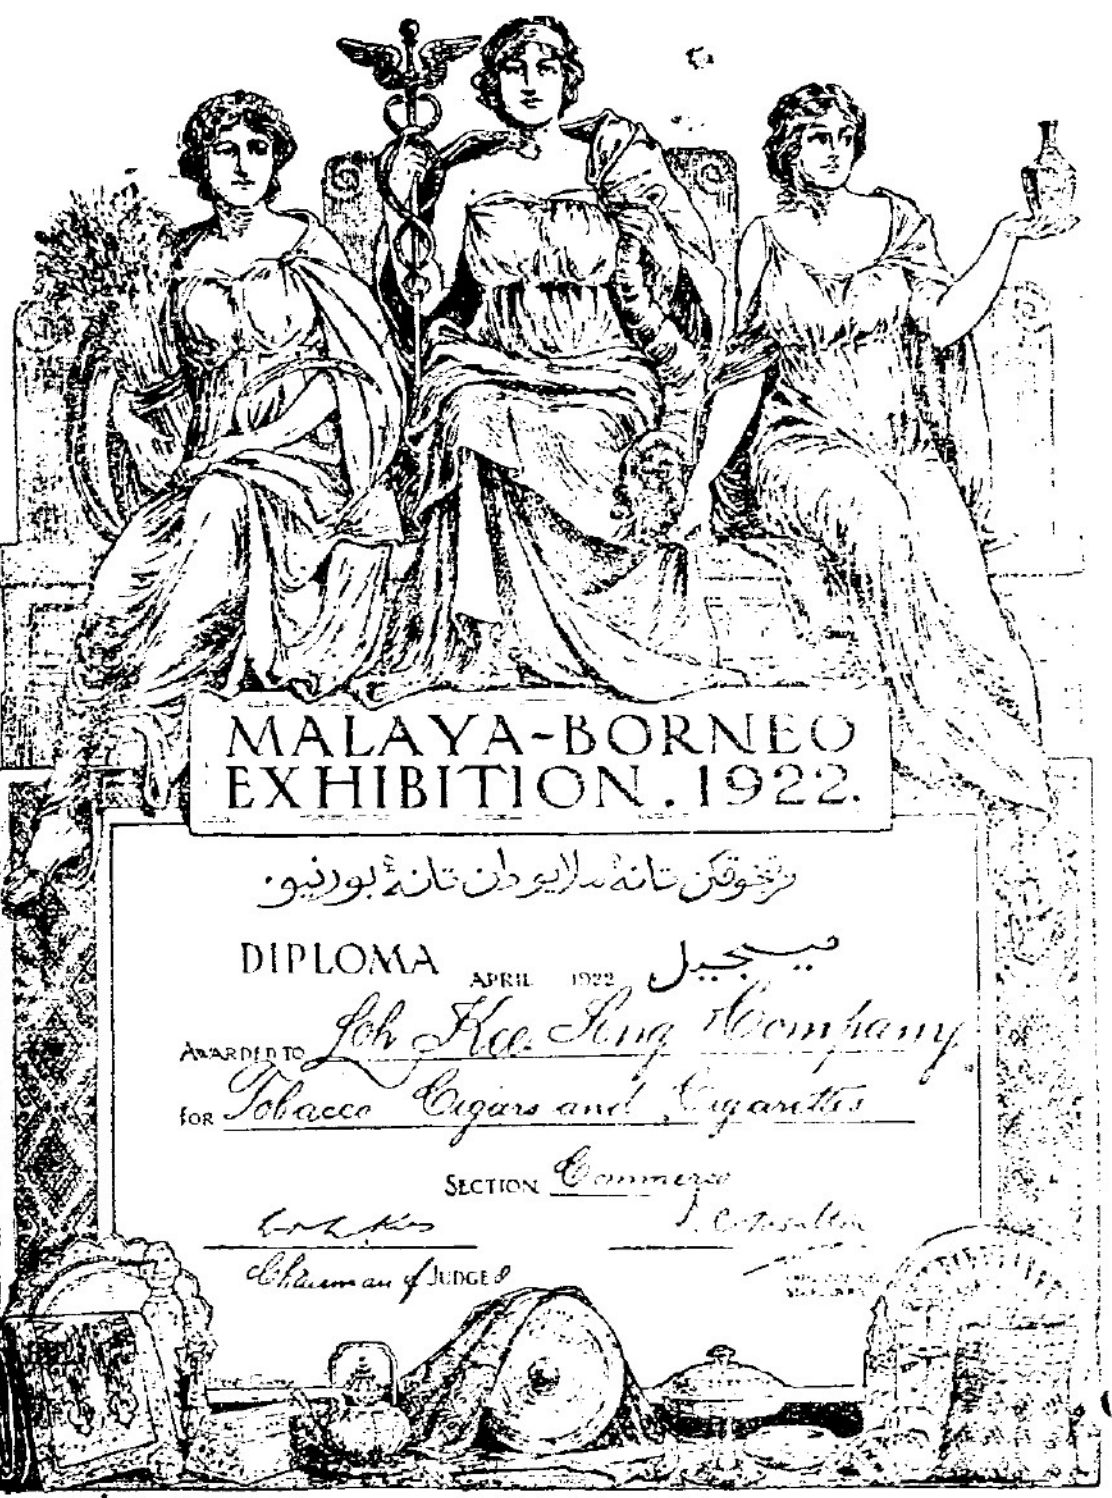 MALAYA-BORNEO
EXHIBITION. 1922.
قرتنجوقكن تانه ملايو دان تانه بورنيو.
DIPLOMA APRIL 1922
AWARDED TO Loh Kee Seng & Company
FOR Tobacco Cigars and Cigarettes
SECTION Commerce
Chairman of JUDGES